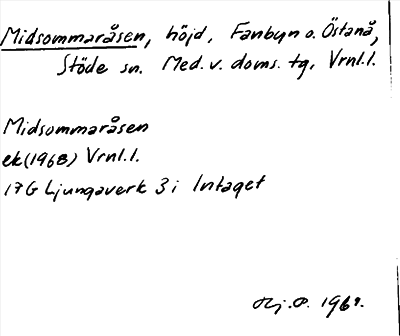 Midsommaråsen, höjd, Fanbyn o. Östanå,
Stöde sn. Med. v. doms. tg, Vrnl. l.
Midsommaråsen
ek (1968) Vrnl. l.
17G Ljungaverk 3 i Intaget
Hj. P. 1969.